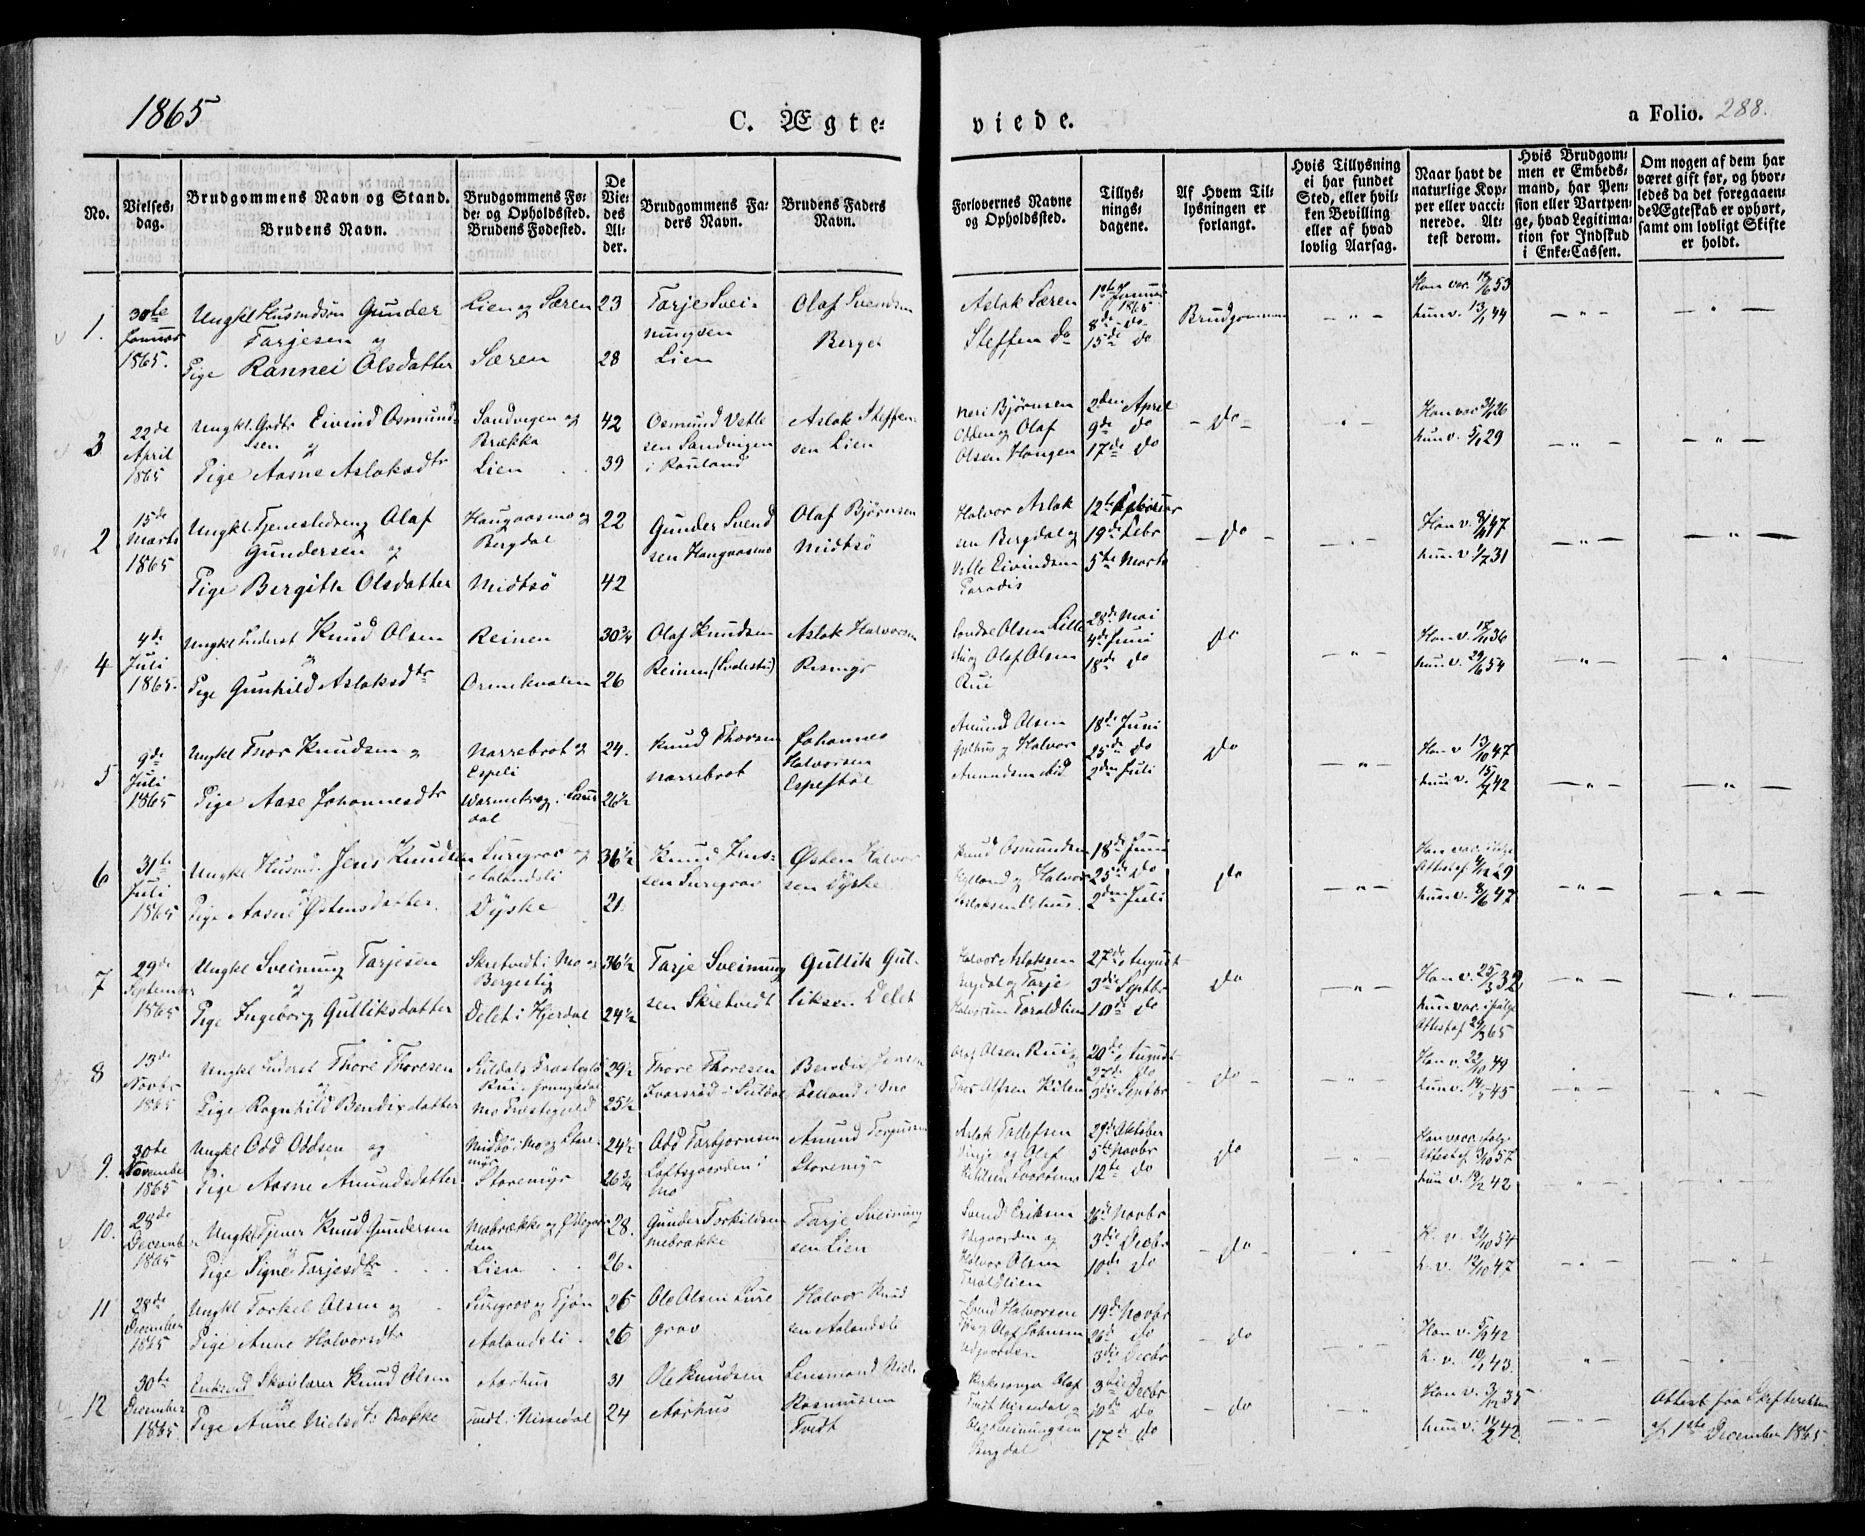 1865
C. Ægte-
viede.
a Folio. 288.
No.
Vielses-
dag.
Brudgommens Navn og Stand.
Brudens Navn.
Brudgommens Fø-
de- og Opholdsted.
Brudens Fødested.
De
Vie-
des
Al-
der.
Brudgommens Fa-
ders Navn.
Brudens Faders
Navn.
Forlovernes Navne
og Opholdsted.
Tillys-
nings-
dagene.
Af Hvem Til-
lysningen er
forlangt.
Hvis Tillysning
ei har fundet
Sted, eller hvil-
ken Bevilling
eller af hvad
lovlig Aarsag.
Naar havt de
naturlige Kop-
per eller vacci-
nerede. At-
test derom.
Hvis Brudgom-
men er Embeds-
mand, har Pen-
sion eller Vartpen-
ge, hvad Legitima-
tion for Indskud
i Enke-Cassen.
Om nogen af dem har
været gift før, og hvor-
ledes da det foregaaen-
de Ægteskab er ophørt,
samt om lovligt Skifte
er holdt.
1.
30te
Januar
1865.
Ungkl Husmdsøn Gunder
Tarjesen og
Pige Rannei Olsdatter
Lien og Særen
Særen
23
28
Tarje Svei-
nungsen
Lien
Olaf Svendsen
Berget
Aslak Særen
Steffen Do
1ste Januar
1865
8de do
15de do
Brudgommen
Han vac. 19/6 53
hun v. 13/1 44
3
22de
April
1865
Ungkl. Gvdr Eivind Osmund-
sen og
Pige Aasne Aslaksdtr
Sandvigen og
Brække
Lien
42
39
Osmund Vetle
sen Sandvigen
i Rauland
Aslak Steffen-
sen Lien
Neri Bjørnsen
Odden og Olaf
Olsen Haugen
2den April
9de do
17de do
- Do -
Han vac 3/1 26
hun v. 5/1 29
2
15de
Marts
1865
Ungkl. Tjenestedreng Olaf
Gundersen og
Pige Bergith Olsdatter
Haugaasmo og
Bergdal
Midtsö
22
42
Gunder Svend
sen Haugaasmo
Olaf Bjørnsen
Midtsö
Halvor Aslak
sen Bergdal og
Vetle Eivindsen
Paradis
12te Februar
19de Febr
5te Marts
- do -
Han v. 8/9 47
hun v. 9/7 31
4
4de
Juli
1865.
Ungkl Inderst Knud Olsen
og
Pige Gunhild Aslaksdtr
Reinen
Ormekvalen
30 3/4
26
Olaf Knudsen
Reinen
Aslak Halvorsen
Rismyr
Sondre Olsen Lille
stu og Olaf Olsen
Rui
28de Mai
4de Juni
18de do
do
Han v. 18/11 36
hun v. 29/6 54
5
9de
Juli
1865
Ungkl Thor Knudsen og
Pige Aase Johannesdtr
Narrebrot og
Espeli
24.
26 1/2
Knud Thorsen
Narrebrot
Johannes
Halvorsen
Espestöl
Amund Olsen
og Halvor
Amundsen ibid
18de Juni
25de Do
2den Juli
do
Han v. 13/10 47
hun v. 15/7 42
6
31te
Juli
1865
Ungkl Husmd. Jens Knudsen
Pige Aasne Østensdatter.
Luregrav og
Aalandsli
Dyske
36 1/2
21.
Knud Jens-
sen Luregrav
Østen Halvor
sen Dyske
Knud Osmundsen
og Halvor
18de Juni
25de do
2den Juli
do
Han vac. ifølge
hun v. 8/6 47
7
29de
September
1865
Ungkl Sveinung Tarjesen
og
Pige Ingeborg Gulliksdatter
Skretvedt i Mo og
Bergestig
Delet i Hjerdal
36 1/2
24 1/2
Tarje Sveinung
sen Skretvedt
Gullik Gul-
liksen Delet
Halvor Aslaksen
Bergdal og Tarje
Halvorsen Taraldlien
27de August
3die Septbr
10de do
do
Han v. 25/3 32
hun vac. ifølge
Attest af 29/3 65
8
13de
Novbr
1865
Ungkl Inderst Thore Thoresen
og
Pige Ragnhild Bendixdatter
Suldals Præstegjeld
Mo Præstegjeld
29 1/2
25 1/2
Thore Thoresen
i Suldal
Bendix Jensen
Felland i Mo
Olaf Olsen Rui og
Thor Olsen Kilen
20de August
27de Do
3die Septbr
- do -
Han v. 22/10 49
hun v. 14/5 45
9.
30te
November
1865
Ungkl Odd Oddsen og
Pige Aasne Amundsdatter
Midtbö i Mo og Store-
myr
Storemyr
24 1/2
26 3/4
Odd Tarbjørnsen
Loftsgaarden i
Mo
Amund Torjusen
Storemyr
Aslak Tallefsen
og Olaf
29de Oktober
5te Novbr
12te Do
do
Han vac. ifølge
hun v. 19/2 42
10.
28de
December
1865
Ungkl Tjener Knud Gundersen
Pige Signe Tarjesdtr
Mebrække og Ødegaar-
den
Lien
28.
26.
Gunder Torkildsen
Mebrække
Tarje Sveinung
sen Lien
Svend Eriksen
Ødegaarden og
Halvor Olsen
Taraldlien
26de Novbr
3die Decbr
10de do
- do -
H. v. 24/10 54
h. v. 12/10 47
11
28de
December
1865
Ungkl Torkel Olsen og
Pige Anne Halvorsdtr
Luregrav og Tjøn
Aalandsli
26
26
Ole Olsen Lure
grav
Halvor Knud
sen Aalandsli
Svend Halvorsen
og Olaf Johnsen
19de Novbr
26de do
3die Decbr
- do
Han v. 5/9 42
h. v. 10/1 43.
12
30te
December
1865
Enkemd Skolelærer Knud Olsen
og
Pige Anne Nielsdtr Bakke
Aarhus
Tvedt i Nissedal
31
24
Ole Knudsen
Aarhus
Lensmand Niels
Rasmussen
Tvedt
Kirkesanger Olaf
Tvedt Nissedal og
Olaf Sveinungsen
Bergdal
3die Decbr
10de do
17de do
- do
Han v. 3/12 35
hun v. 14/2 42.
Attest fra Skifteretten
af 1ste December 1865.